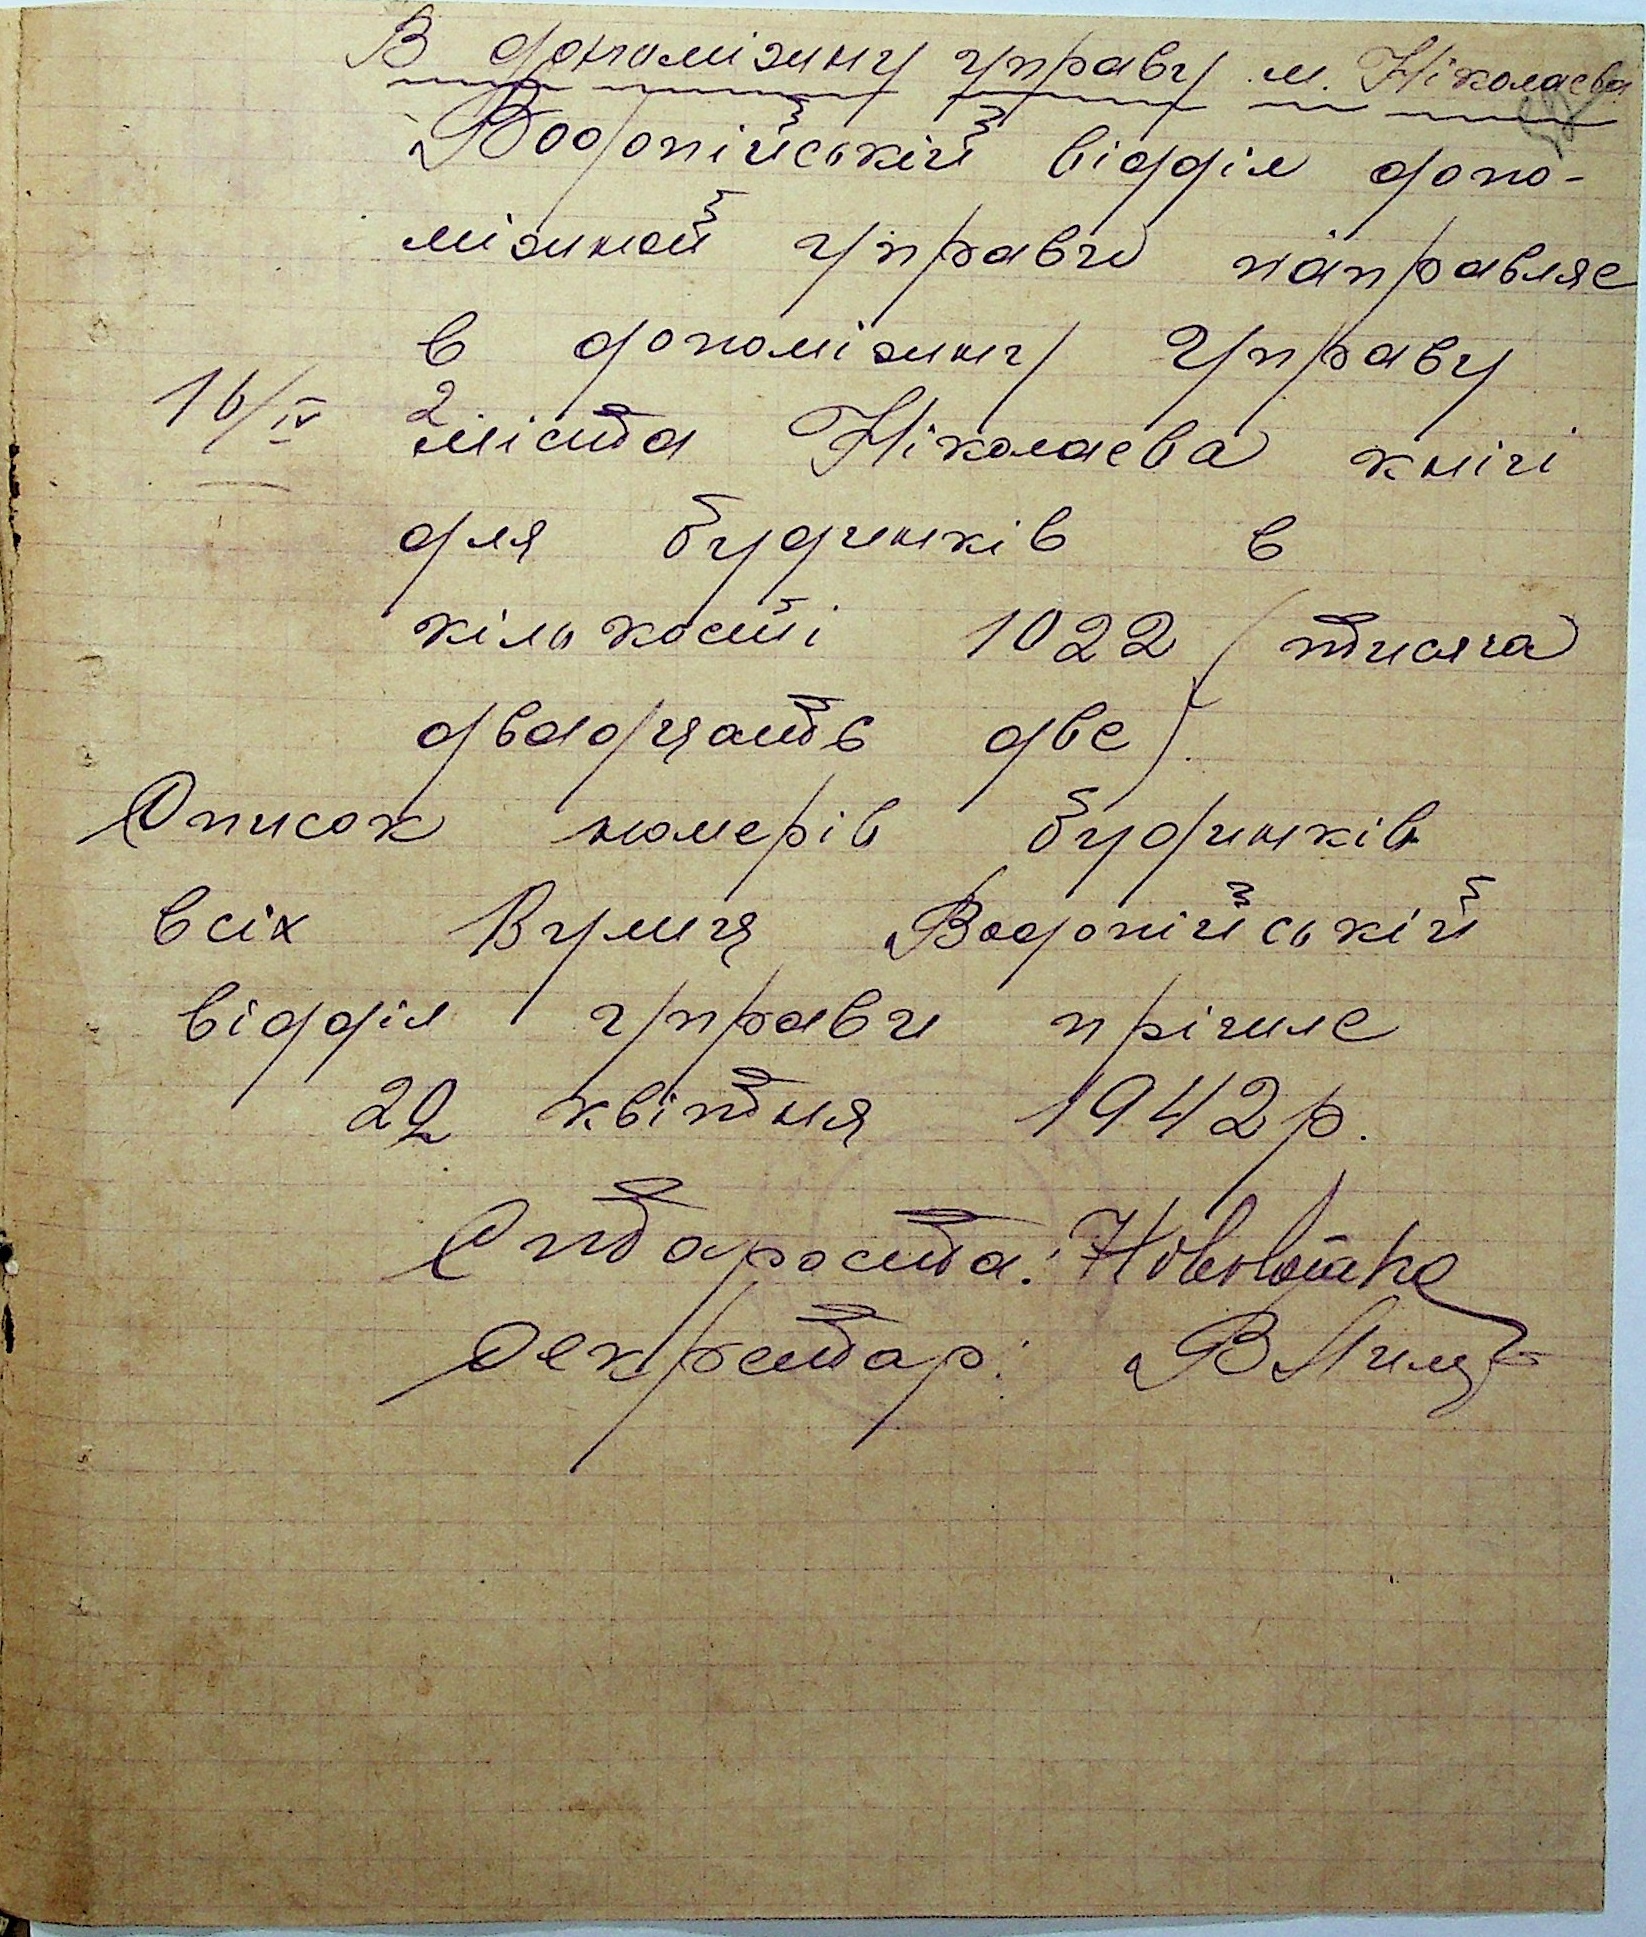 В допомізжну управу м. Ніколаєва
Водопійській відділ допо-
міжной управи направляє
в допоміжну Управу
16/IV 2
міста Ніколаєва кнігі
для будинків в
кількості 1022 (тисяча
двадцать две).
Список номерів будинків
всіх Вулиця Водопійській
відділ управи прішле
22 квітня 1942 р.
Староста:
Секретар: В